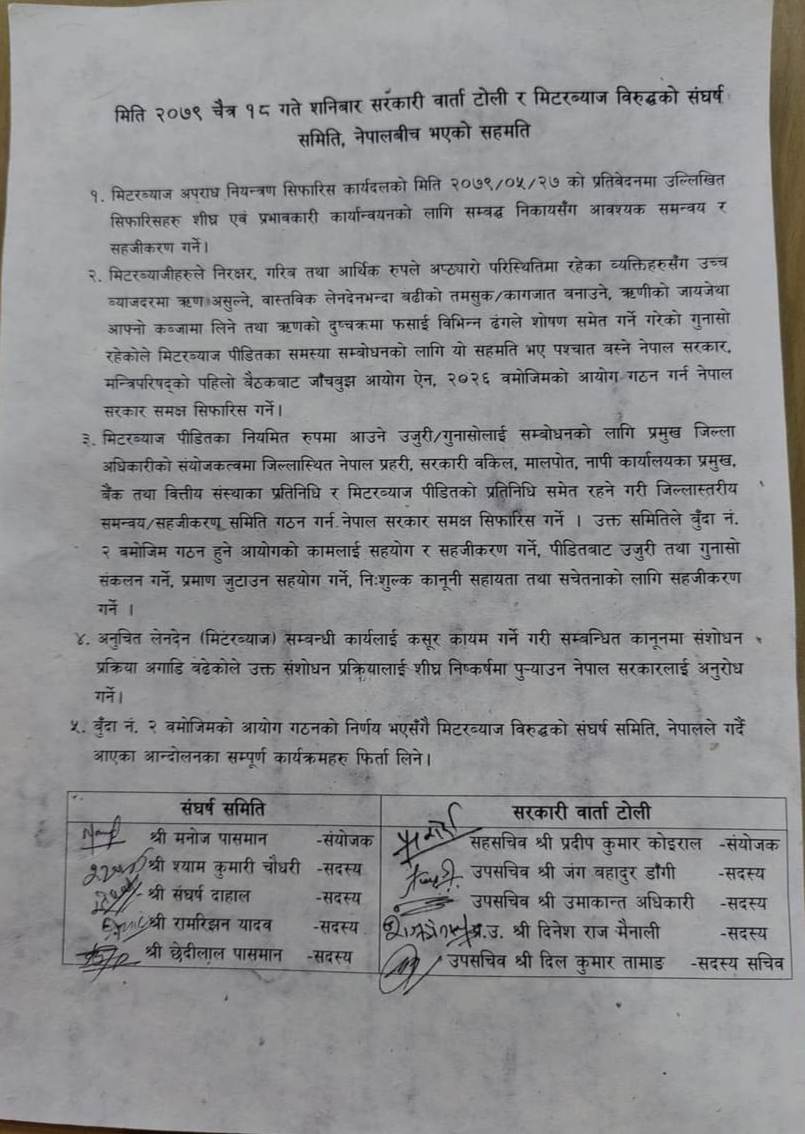 मिति २०७९ चैत्र १८ गते शनिबार सरकारी वार्ता टोली र मिटरब्याज विरुद्धको संघर्ष
समिति, नेपालबीच भएको सहमति
१. मिटरब्याज अपराध नियन्त्रण सिफारिस कार्यदलको मिति २०७९/०५/२७ को प्रतिवेदनमा उल्लिखित
सिफारिसहरू शीघ्र एवं प्रभावकारी कार्यान्वयनको लागि सम्वद्ध निकायसँग आवश्यक समन्वय र
सहजीकरण गर्ने।
२. मिटरब्याजीहरूले निरक्षर, गरिब तथा आर्थिक रुपले अप्ठ्यारो परिस्थितिमा रहेका व्यक्तिहरुसँग उच्च
ब्याजदरमा ऋण असुल्ने, वास्तविक लेनदेनभन्दा बढीको तमसुक/कागजात बनाउने, ऋणीको जायजेथा
आफ्नो कब्जामा लिने तथा ऋणको दुष्चक्रमा फसाई विभिन्न ढंगले शोषण समेत गर्ने गरेको गुनासो
रहेकोले मिटरब्याज पीडितका समस्या सम्बोधनको लागि यो सहमति भए पश्चात बस्ने नेपाल सरकार,
मन्त्रिपरिषद्को पहिलो बैठकबाट जाँचबुझ आयोग ऐन, २०२६ बमोजिमको आयोग गठन गर्न नेपाल
सरकार समक्ष सिफारिस गर्ने।
३. मिटरब्याज पीडितका नियमित रुपमा आउने उजुरी/गुनासोलाई सम्बोधनको लागि प्रमुख जिल्ला
अधिकारीको संयोजकत्वमा जिल्लास्थित नेपाल प्रहरी, सरकारी वकिल, मालपोत, नापी कार्यालयका प्रमुख,
बैंक तथा वित्तीय संस्थाका प्रतिनिधि र मिटरब्याज पीडितको प्रतिनिधि समेत रहने गरी जिल्लास्तरीय
समन्वय/सहजीकरण समिति गठन गर्न नेपाल सरकार समक्ष सिफारिस गर्ने । उक्त समितिले बुँदा नं.
२ बमोजिम गठन हुने आयोगको कामलाई सहयोग र सहजीकरण गर्ने, पीडितबाट उजुरी तथा गुनासो
संकलन गर्ने, प्रमाण जुटाउन सहयोग गर्ने, निःशुल्क कानूनी सहायता तथा सचेतनाको लागि सहजीकरण
गर्ने ।
४. अनुचित लेनदेन (मिटरब्याज) सम्बन्धी कार्यलाई कसूर कायम गर्ने गरी सम्बन्धित कानूनमा संशोधन
प्रक्रिया अगाडि बढेकोले उक्त संशोधन प्रक्रियालाई शीघ्र निष्कर्षमा पुऱ्याउन नेपाल सरकारलाई अनुरोध
गर्ने।
५. बुँदा नं. २ बमोजिमको आयोग गठनको निर्णय भएसँगै मिटरब्याज विरुद्धको संघर्ष समिति, नेपालले गर्दै
आएका आन्दोलनका सम्पूर्ण कार्यक्रमहरू फिर्ता लिने।
संघर्ष समिति
श्री मनोज पासमान -संयोजक
श्री श्याम कुमारी चौधरी -सदस्य
श्री संघर्ष दाहाल -सदस्य
श्री रामरिझन यादव -सदस्य
श्री छेदीलाल पासमान -सदस्य
सरकारी वार्ता टोली
सहसचिव श्री प्रदीप कुमार कोइराल -संयोजक
उपसचिव श्री जंग बहादुर डाँगी -सदस्य
उपसचिव श्री उमाकान्त अधिकारी -सदस्य
प्र.उ. श्री दिनेश राज मैनाली -सदस्य
उपसचिव श्री दिल कुमार तामाङ -सदस्य सचिव